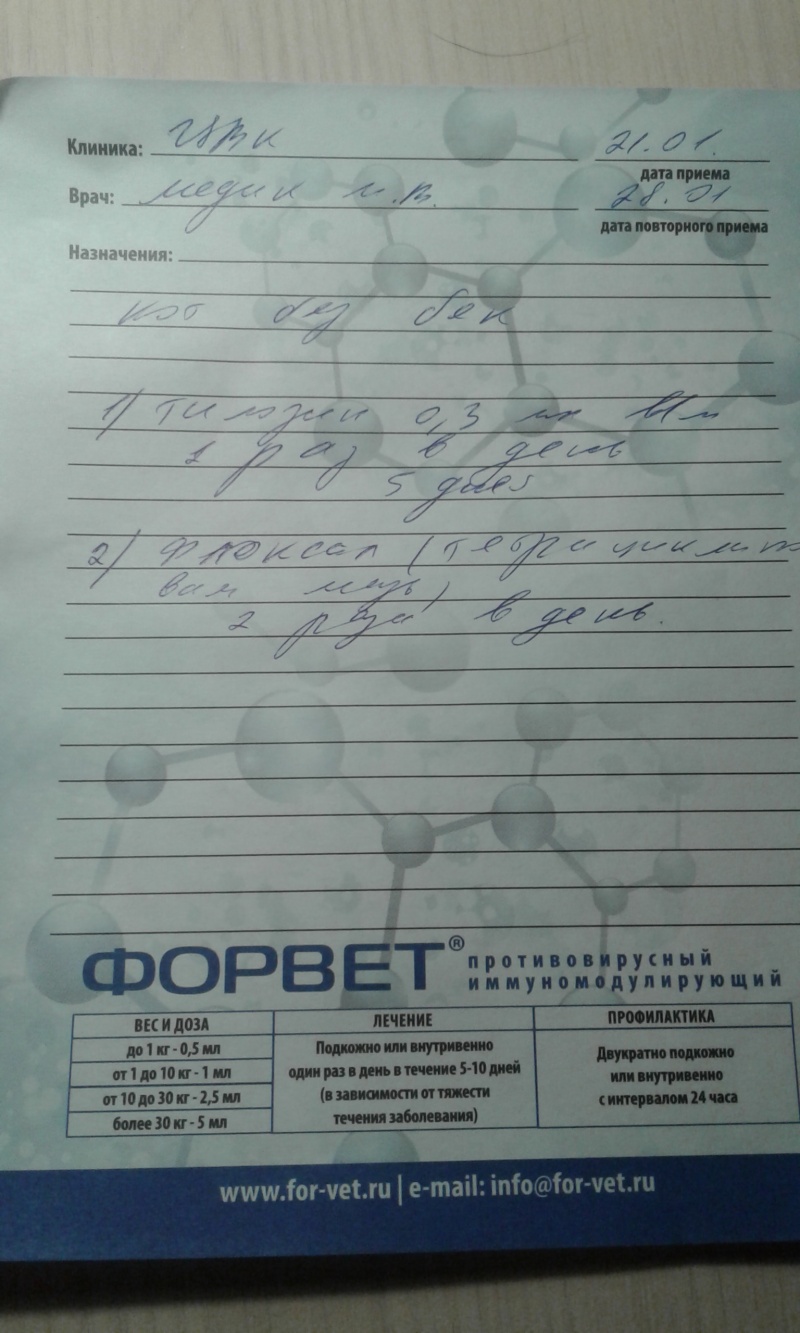 Клиника: ЦВК 21.01.
дата приема
Врач: медик и.в. 28.01
дата повторного приема
Назначения:
кот без бек
1) Тилозин 0,3 мл в/м
1 раз в день
5 дней
2) Флоксал (тетрациклин
вая мазь)
2 раза в день.
ФОРВЕТ® противовирусный
иммуномодулирующий
ВЕС И ДОЗА ЛЕЧЕНИЕ ПРОФИЛАКТИКА
до 1 кг - 0,5 мл
от 1 до 10 кг - 1 мл
от 10 до 30 кг - 2,5 мл
более 30 кг - 5 мл
Подкожно или внутривенно
один раз в день в течение 5-10 дней
(в зависимости от тяжести
течения заболевания)
Двукратно подкожно
или внутривенно
с интервалом 24 часа
www.for-vet.ru | e-mail: info@for-vet.ru